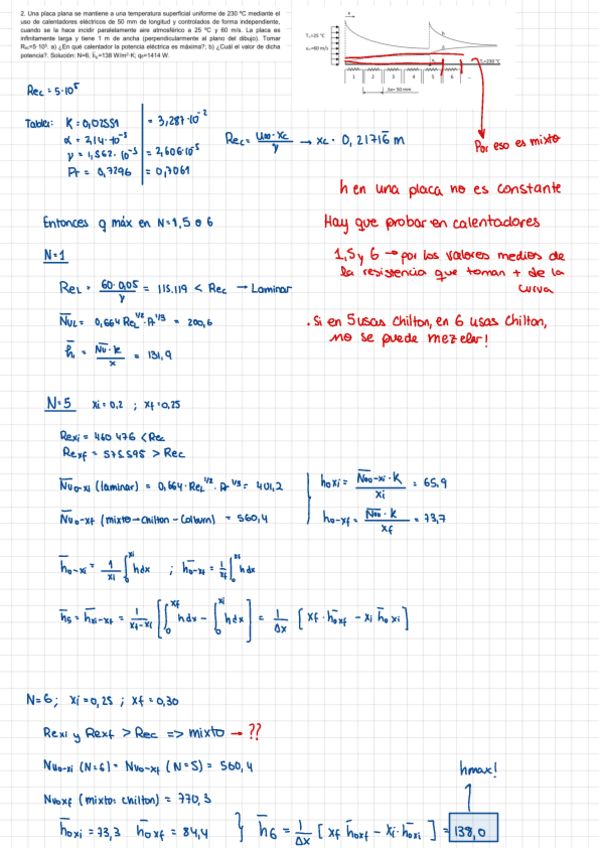 2. Una placa plana se mantiene a una temperatura superficial uniforme de 230 ºC mediante el
uso de calentadores eléctricos de 50 mm de longitud y controlados de forma independiente,
cuando se la hace incidir paralelamente aire atmosférico a 25 ºC y 60 m/s. La placa es
infinitamente larga y tiene 1 m de ancha (perpendicularmente al plano del dibujo). Tomar
Reₓc=5·10⁵. a) ¿En qué calentador la potencia eléctrica es máxima?; b) ¿Cuál el valor de dicha
potencia?. Solución: N=6; h̄₆=138 W/m²·K; q₆=1414 W.
T∞=25 °C
u∞=60 m/s
Tₛ=230 °C
1 2 3 4 5 6
Δx= 50 mm
Rec = 5·10⁵
Tablas: K = 0,02551 = 3,287·10⁻²
α = 2,14·10⁻⁵
γ = 1,562·10⁻⁵ = 2,606·10⁻⁵
Pr = 0,7296 = 0,7061
Rec = u∞·xc / γ → xc = 0,21716 m
Por eso es mixto
h en una placa no es constante
Entonces q máx en N=1,5 o 6
Hay que probar en calentadores
1,5 y 6 → por los valores medios de
la resistencia que toman + de la
curva
N=1
ReL = 60·0,05 / γ = 115.119 < Rec → Laminar
N̄uL = 0,664 ReL^1/2 · Pr^1/3 = 200,6
h̄ = N̄u·k / x = 131,9
· Si en 5 usas Chilton, en 6 usas Chilton,
no se puede mezclar!
N=5 xi=0,2 ; xf=0,25
Rexi = 460 476 < Rec
Rexf = 575.595 > Rec
N̄u0-xi (laminar) = 0,664·ReL^1/2 · Pr^1/3 = 401,2
h0xi = N̄u0-xi·K / xi = 65,9
N̄u0-xf (mixto-Chilton-Colburn) = 560,4
h0-xf = N̄u·k / xf = 73,7
h̄0-xi = 1/xi ∫₀^xi h dx ; h̄0-xf = 1/xf ∫₀^xf h dx
h̄5 = h̄xi-xf = 1/(xf-xi) [∫₀^xf h dx - ∫₀^xi h dx] = 1/Δx [xf·h̄0xf - xi h̄0xi]
N=6; xi=0,25 ; xf=0,30
Rexi y Rexf > Rec => mixto → ??
Nu0-xi (N=6) = Nu0-xf (N=5) = 560,4
hmax!
Nu0xf (mixto: chilton) = 770,3
h̄0xi = 73,3 h̄0xf = 84,4 } h̄6 = 1/Δx [xf h̄0xf - xi·h̄0xi] = 138,0